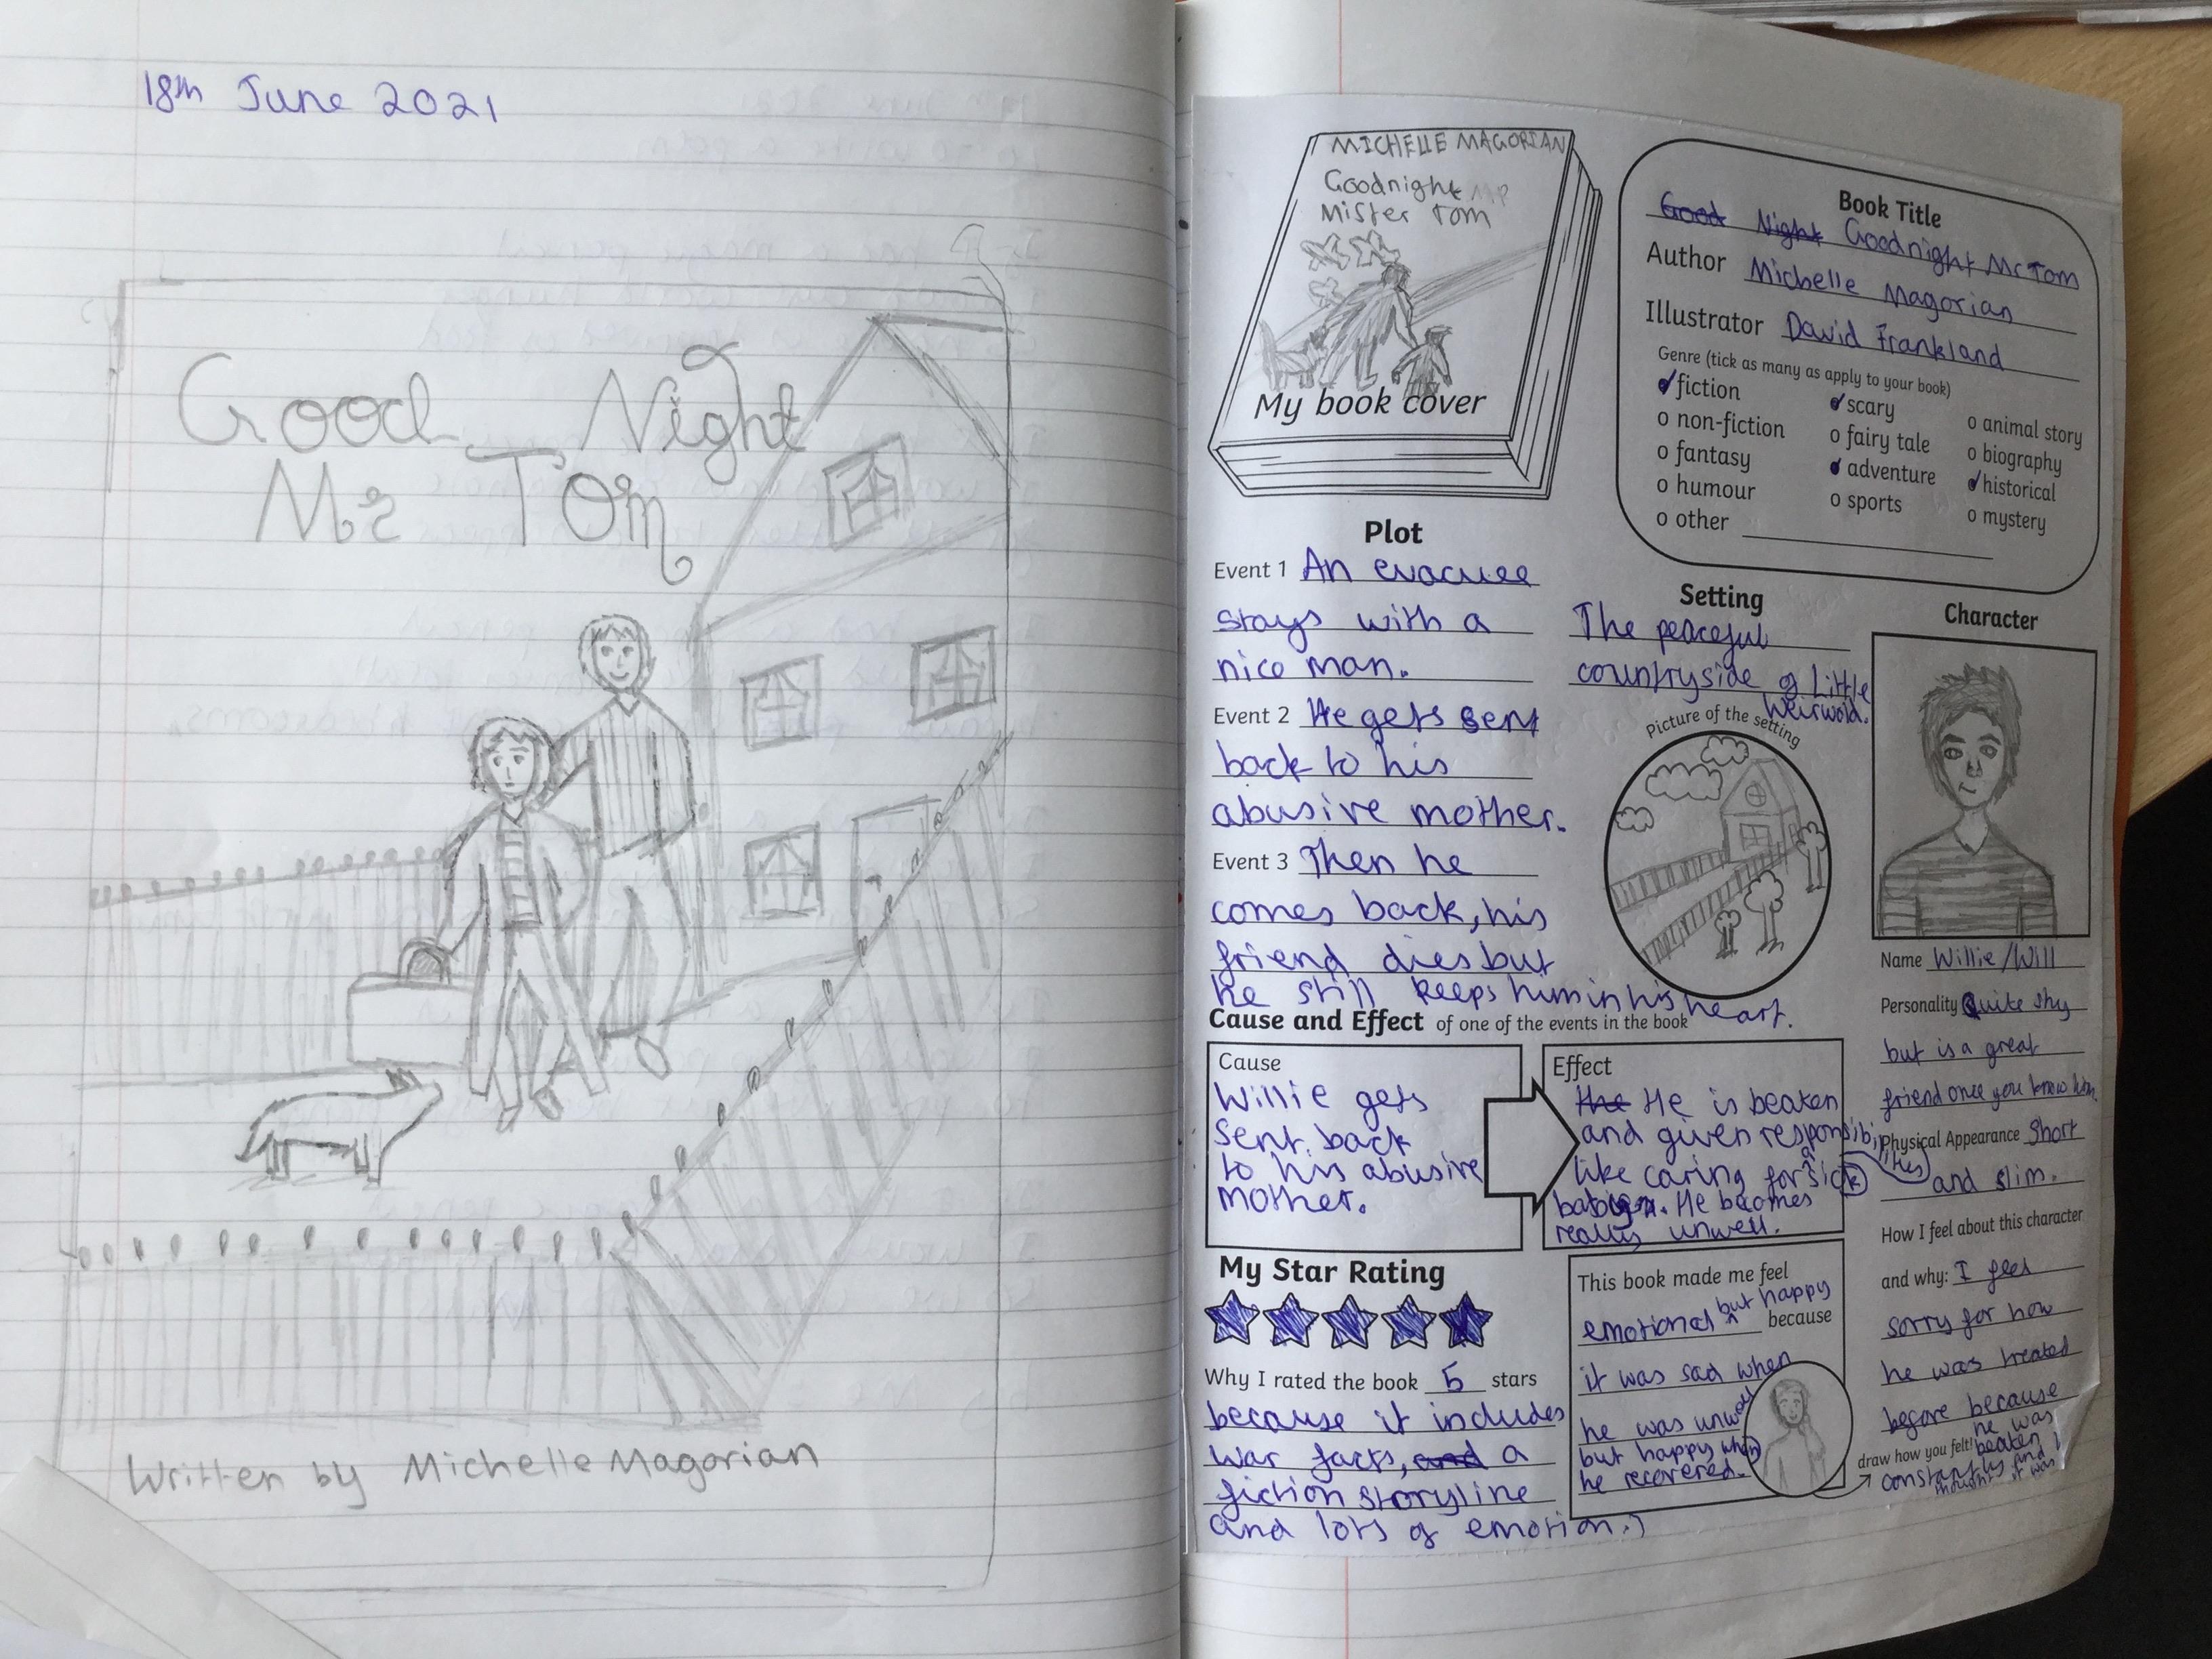 18th June 2021
Good Night
Mr Tom
Written by Michelle Magorian
MICHELLE MAGORIAN
Goodnight Mr
Mister Tom
My book cover
Book Title
Good Night Goodnight Mr Tom
Author Michelle Magorian
Illustrator David Frankland
Genre (tick as many as apply to your book)
fiction
non-fiction
fantasy
humour
other
scary
fairy tale
adventure
sports
animal story
biography
historical
mystery
Plot
Event 1 An evacuee
stays with a
nice man.
Event 2 He gets sent
back to his
abusive mother.
Event 3 Then he
comes back, his
friend dies but
he still keeps him in his heart.
Setting
The peaceful
countryside of Little
Weirwold.
Picture of the setting
Character
Name Willie/Will
Personality Quite shy
but is a great
friend once you know him.
Physical Appearance short
and slim.
How I feel about this character
and why: I feel
sorry for how
he was treated
before because
he was
beaten
constantly and I
thought it was
Cause and Effect of one of the events in the book
Cause
Willie gets
sent back
to his abusive
mother.
Effect
the He is beaten
and given responsibilities
like caring for a sick
baby. He becomes
really unwell.
My Star Rating
Why I rated the book 5 stars
because it includes
war facts, and a
fiction storyline
and lots of emotion.
This book made me feel
emotional but happy because
it was sad when
he was unwell
but happy when
he recovered.
draw how you felt!